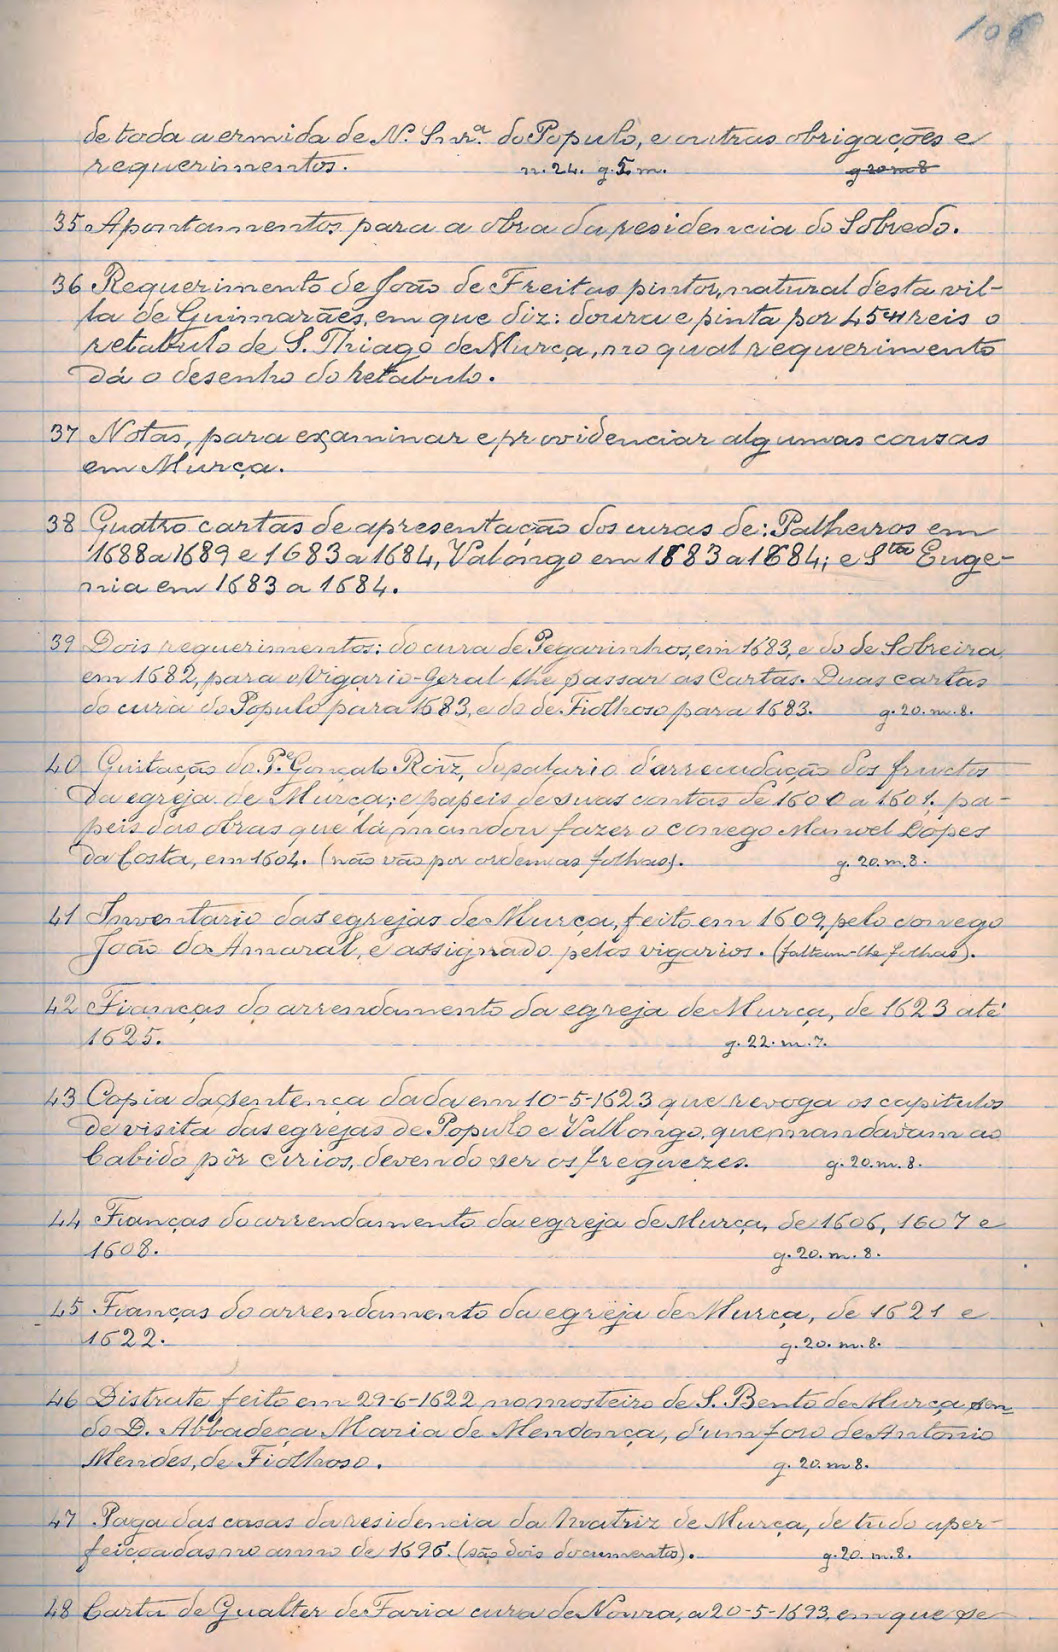 106
de toda a ermida de N. Snr.ª do Populo, e outras obrigações e
requerimentos. n. 24. g. 5. m. g 20 m 8
35 Apontamentos para a obra da residencia do Sobredo.
36 Requerimento de João de Freitas pintor, natural d'esta vil-
la de Guimarães, em que diz: doura e pinta por 45$ reis o
retabulo de S. Thiago de Murça, no qual requerimento
dá o desenho do retabulo.
37 Notas, para examinar e providenciar algumas cousas
em Murça.
38 Quatro cartas de apresentação dos curas de: Palheiros em
1688 a 1689 e 1683 a 1684, Valongo em 1683 a 1684; e Sta Euge-
nia em 1683 a 1684.
39 Dois requerimentos: do cura de Pegarinhos, em 1683, e do de Sobreira,
em 1682, para o Vigario-Geral lhe passar as Cartas. Duas cartas
do cura do Populo para 1683, e do de Fiolhoso para 1683. g. 20. m. 8.
40 Quitação do P.e Gonçalo Roiz, do salario d'arrecadação dos fructos
da egreja de Murça; e papeis de suas contas de 1600 a 1601. pa-
peis das obras que lá mandou fazer o conego Manoel Lopes
da Costa, em 1604. (não vão por ordem as folhas). g. 20. m. 8.
41 Inventario das egrejas de Murça, feito em 1609, pelo conego
João do Amaral, e assignado pelos vigarios. (faltam-lhe folhas).
42 Fianças do arrendamento da egreja de Murça, de 1623 até
1625. g. 22. m. 7.
43 Copia da sentença dada em 10-5-1623 que revoga os capitulos
de visita das egrejas de Populo e Vallongo, que mandavam ao
Cabido pôr cirios, devendo ser os freguezes. g. 20. m. 8.
44 Fianças do arrendamento da egreja de Murça, de 1606, 1607 e
1608. g. 20. m. 8.
45 Fianças do arrendamento da egreja de Murça, de 1621 e
1622. g. 20. m. 8.
46 Distrate feito em 29-6-1622 no mosteiro de S. Bento de Murça sen-
do D. Abbadeça Maria de Mendonça, d'um foro de Antonio
Mendes, de Fiolhoso. g. 20. m 8.
47 Paga das casas da residencia da Matriz de Murça, de tudo aper-
feiçoadas no anno de 1696. (são dois documentos). g. 20. m. 8.
48 Carta de Gualter de Faria cura de Noura, a 20-5-1693, em que se